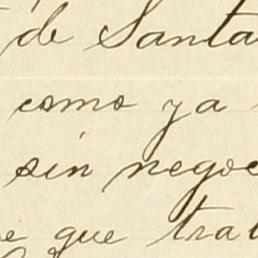 de Santa
como ya
sin negoc
e que trat